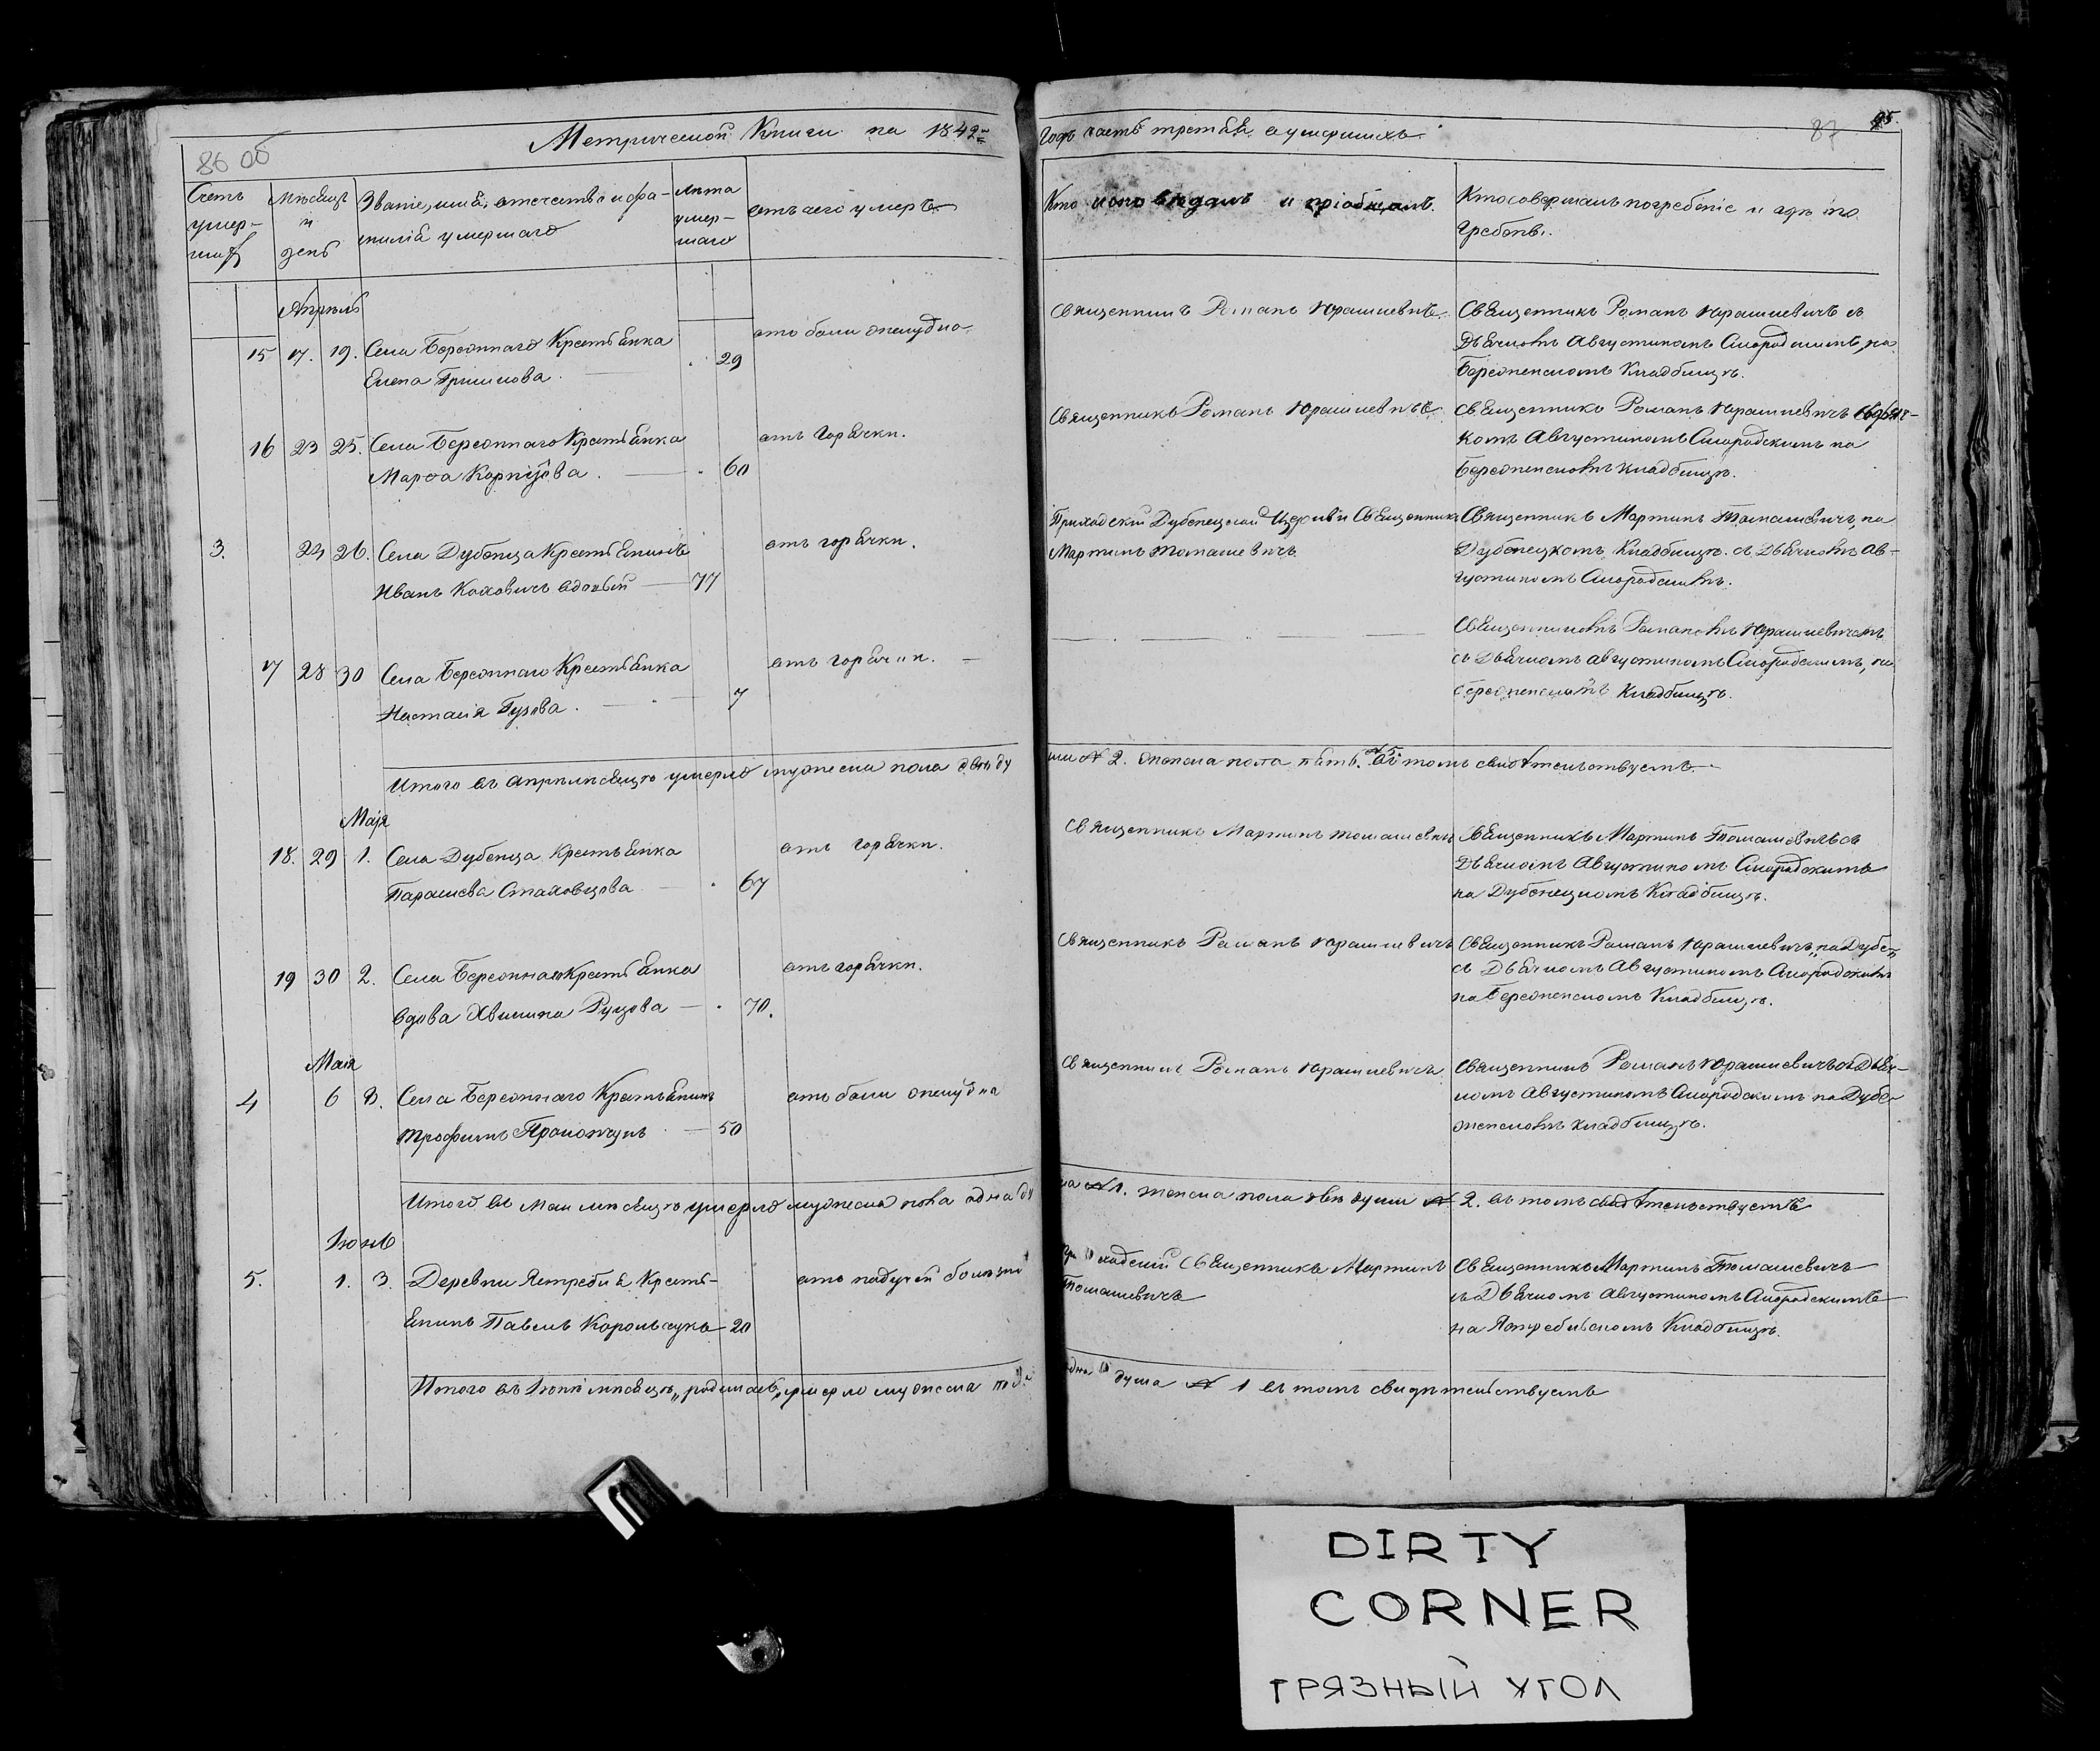 86 об
Метрической Книги на 1842й
Годъ часть третья, о умершихъ.
87
95.
Счетъ умер-шихъ
Мѣсяцъ и день
Званіе, имя, отечество и фа-
милія умершаго
Лѣта умер-шаго
отъ чего умеръ
Кто исповѣдалъ и пріобщалъ.
Кто совершалъ погребеніе и гдѣ по
гребены.
Апрѣль
15 17. 19. Села Бережнаго Крестьянка
Елена Гришкова. 29
отъ боли
Священникъ Романъ Юрашкевичъ.
Священникъ Романъ Юрашкевичъ съ
Дьячкомъ Августиномъ Смородскимъ, на
Бережненскомъ Кладбищѣ.
16 23 25. Села Бережнаго Крестьянка
Марѳа 60
отъ горячки.
Священникъ Романъ Юрашкевичъ
Священникъ Романъ Юрашкевичъ
комъ Августиномъ Смородскимъ на
Бережненскомъ кладбищѣ.
3. 24 26. Села Дубенца Крестьянинъ
Иванъ Коховичъ вдовый 77
отъ горячки.
Приходскій Дубенецкой Церкви Священникъ
Мартинъ Томашевичъ
Священникъ Мартинъ Томашевичъ, на
Дубенецкомъ Кладбищѣ. съ Дьячкомъ Ав-
густиномъ Смородскимъ.
7 28 30 Села Бережнаго Крестьянка
Настасія Гузова. 7
отъ горячки.
Священникомъ Романомъ Юрашкевичемъ
съ Дьячкомъ Августиномъ Смородскимъ, на
бережненскомъ Кладбищѣ.
Итого въ апрѣлѣ мѣсяцѣ умерло мужеска пола двѣ ду
ши № 2. женска пола пять. № 5. въ томъ свидѣтельствуемъ.
Маія
18. 29 1. Села Дубенца Крестьянка
Параскева Стаховцова 67
отъ горячки.
Священникъ Мартинъ Томашевичъ
Священникъ Мартинъ Томашевичъ съ
Дьячкомъ Августиномъ Смородскимъ
на Дубенецкомъ Кладбищѣ.
19 30 2. Села Бережнаго Крестьянка
вдова 70.
отъ горячки.
Священникъ Романъ Юрашкевичъ
Священникъ Романъ Юрашкевичъ, на Дубен
съ Дьячкомъ Августиномъ Смородскимъ
на Бережненскомъ Кладбищѣ.
Маія
4 6 8. Села Бережнаго Крестьянинъ
Трофимъ 50
отъ боли
Священникъ Романъ Юрашкевичъ
Священникъ Романъ Юрашкевичъ съ Дьяч-
комъ Августиномъ Смородскимъ на
кладбищѣ.
Итого въ Маи мѣсяцѣ умерло мужеска пола одна ду
ша № 1. женска пола двѣ души № 2. въ томъ свидѣтельствуемъ
Іюнь
5. 1. 3. Деревни Ястребля Кресть-
янинъ Павелъ Корольчукъ 20
отъ падучей болѣзни
Приходскій Священникъ Мартинъ
Томашевичъ
Священникъ Мартинъ Томашевичъ
съ Дьячкомъ Августиномъ Смородскимъ
на Ястребльскомъ Кладбищѣ.
Итого въ Іюнѣ мѣсяцѣ умерло мужеска пола
одна душа № 1 въ томъ свидѣтельствуемъ
DIRTY
CORNER
ГРЯЗНЫЙ УГОЛ